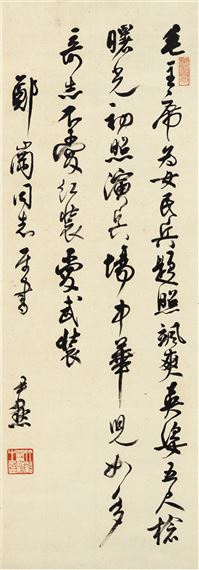 毛主席为女民兵题照飒爽英姿五尺枪
曙光初照演兵場中華児女多
奇志不爱红装爱武装
鄭崗同志属書
尹默